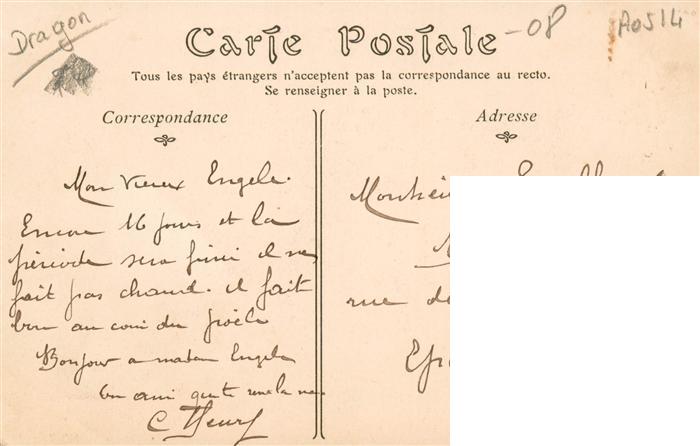 Dragon
-08
A0514
Carte Postale
Tous les pays étrangers n'acceptent pas la correspondance au recto.
Se renseigner à la poste.
Correspondance
Adresse
Mon Vieux Engele.
Encore 16 jours et la
période sera fini il ne
fait pas chaud. il fait
bon au coin du poêle
Bonjour a madam Engele
un ami qui te
C
Monsieu
rue de